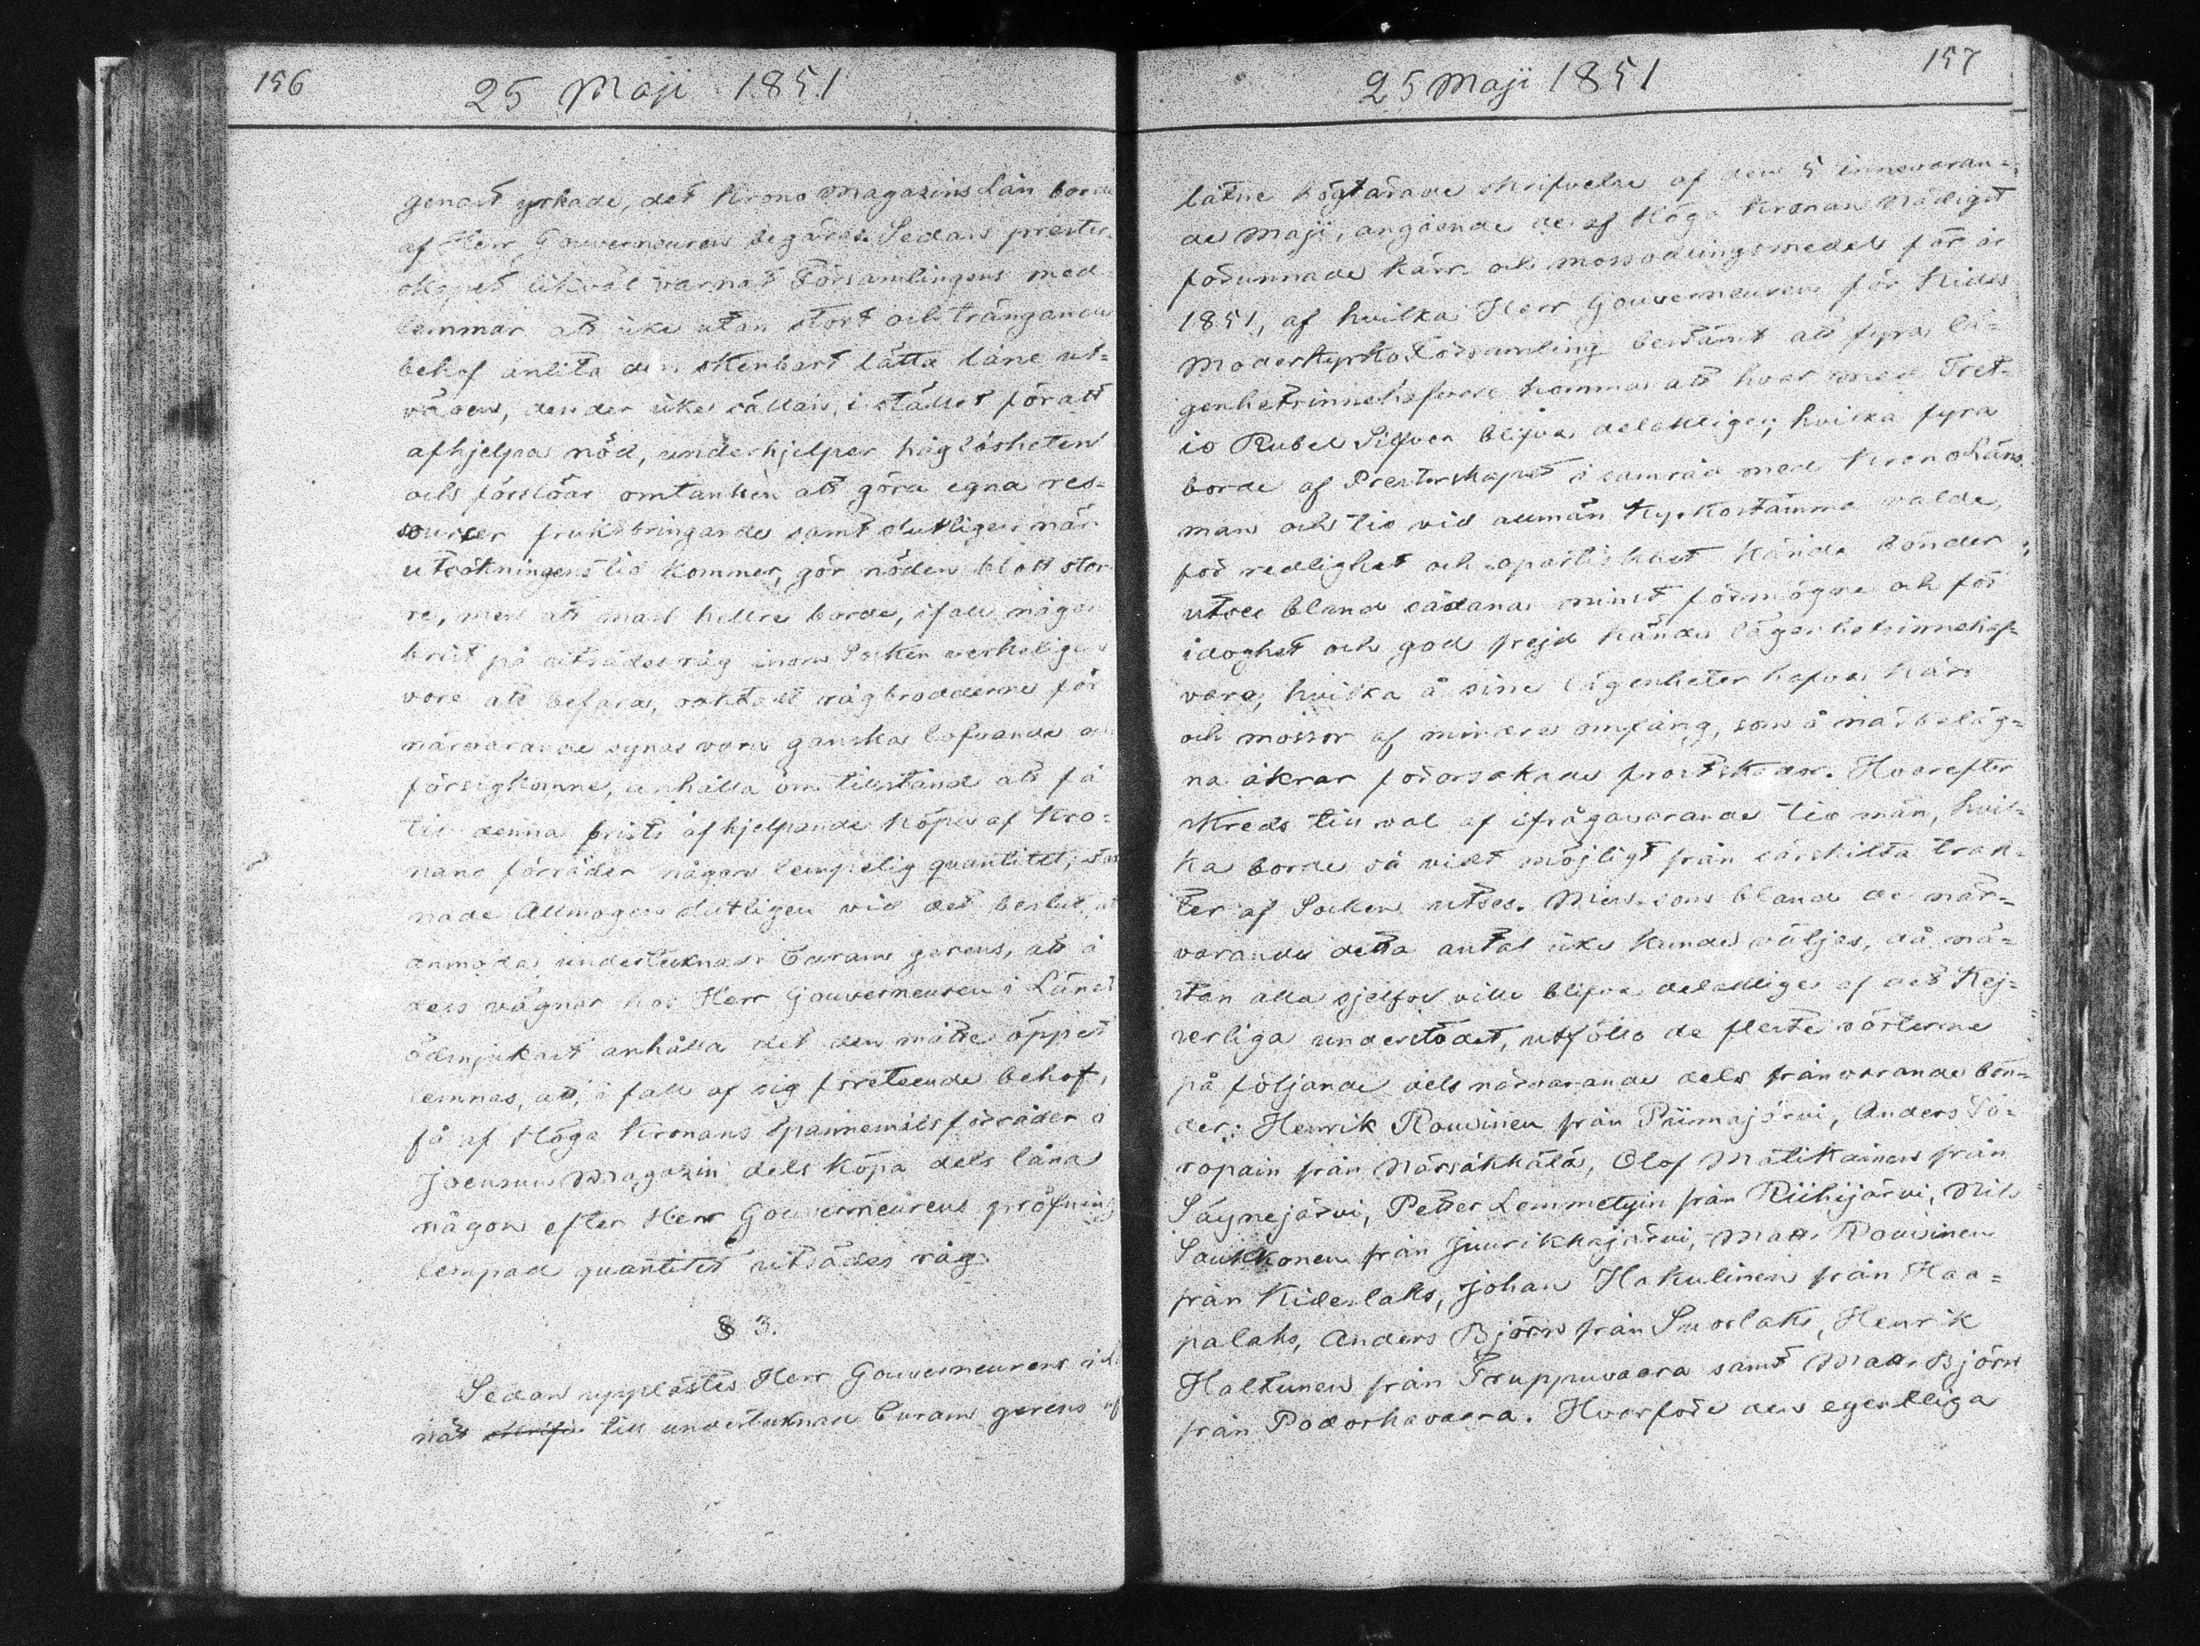 156
25 Maji 1851
genast yrkade, det Krono Magazins Lån borde
af Herr Gouverneuren begäras. Sedan prester-
skapet likväl varnat Församlingens med-
lemmar att icke utan stort och trängande
behof anlita den skenbart lätta låne ut-
vägen, den der icke sällan, i stället för att
afhjelpa nöd, underhjelper håglösheten
och förslöar omtanken att göra egna res-
sourcer fruktbringande samt slutligen när
utsökningens tid kommer, gör nöden blott stör-
re, men att man hellre borde, ifall någon
brist på utsädes råg inom Socken verkeligen
vore att befara, oaktadt rågbroddarne för
närvarande synas vara ganska lofvande och
försigkomne, anhålla om tillstånd att få
till denna brists afhjelpande köpa af Kro-
nans förråder någon lempelig quantitet, stan-
nade Allmogen slutligen vid det beslut, att
anmoda undertecknad Curam gerens, att å
dess vägnar hos Herr Gouverneuren i Länet
ödmjukast anhålla det den måtte öppet
lemnas, att, i fall af sig företeende behof,
få af Höga Kronans Spannemålsförråder i
Joensuu Magazin dels köpa dels låna
någon efter Herr Gouverneurens pröfning
lempad quantitet utsädes råg.
§ 3.
Sedan upplästes Herr Gouverneurens i Lä-
net till undertecknad Curam gerens af-
157
25 Maji 1851
låtne högtärade skrifvelse af den 5 innevaran-
de Maji, angående de af Höga Kronan Nådigst
förunnade kärr och mossodlingsmedel för år
1851, af hvilka Herr Gouverneuren för Kides
Moderkyrko Församling bestämt att fyra lä-
genhetsinnehafvare komma att hvar med Tret-
io Rubel Silfver blifva delaktige, hvilka fyra
borde af Presterskapet i samråd med Kronoläns-
man och tio vid allmän Kyrkostämma valde,
för redlighet och opartiskhet kände bönder,
utses bland sådana minst förmögne och för
idoghet och god frejd kände lägenhetsinnehaf-
vare, hvilka å sine lägenheter hafva kärr
och mossor af mindre omfång, som å närbeläg-
na åkrar förorsakade frostskador. Hvarefter
skreds till val af ifrågavarande tio män, hvil-
ka borde så vidt möjligt från särskilta trak-
ter af Socken utses. Men som bland de när-
varande detta antal icke kunde väljas, då nä-
stan alla sjelfve ville blifva delaktige af det Kej-
serliga understödet, utföllo de fleste rösterne
på följande dels närvarande dels frånvarande bön-
der: Henrik Rouvinen från Piimajärvi, Anders Sä-
röpain från Närsäkkälä, Olof Matikainen från
Säynejärvi, Petter Lemmetyin från Riihijärvi, Nils
Saukkonen från Juurikkajärvi, Matts Rouvinen
från Kideslaks, Johan Hakulinen från Haa-
palaks, Anders Björn från Suorlaks, Henrik
Haltunen från Pruppuvaara samt Matts Björn
från Podorhavaara. Hvarföre den egentliga